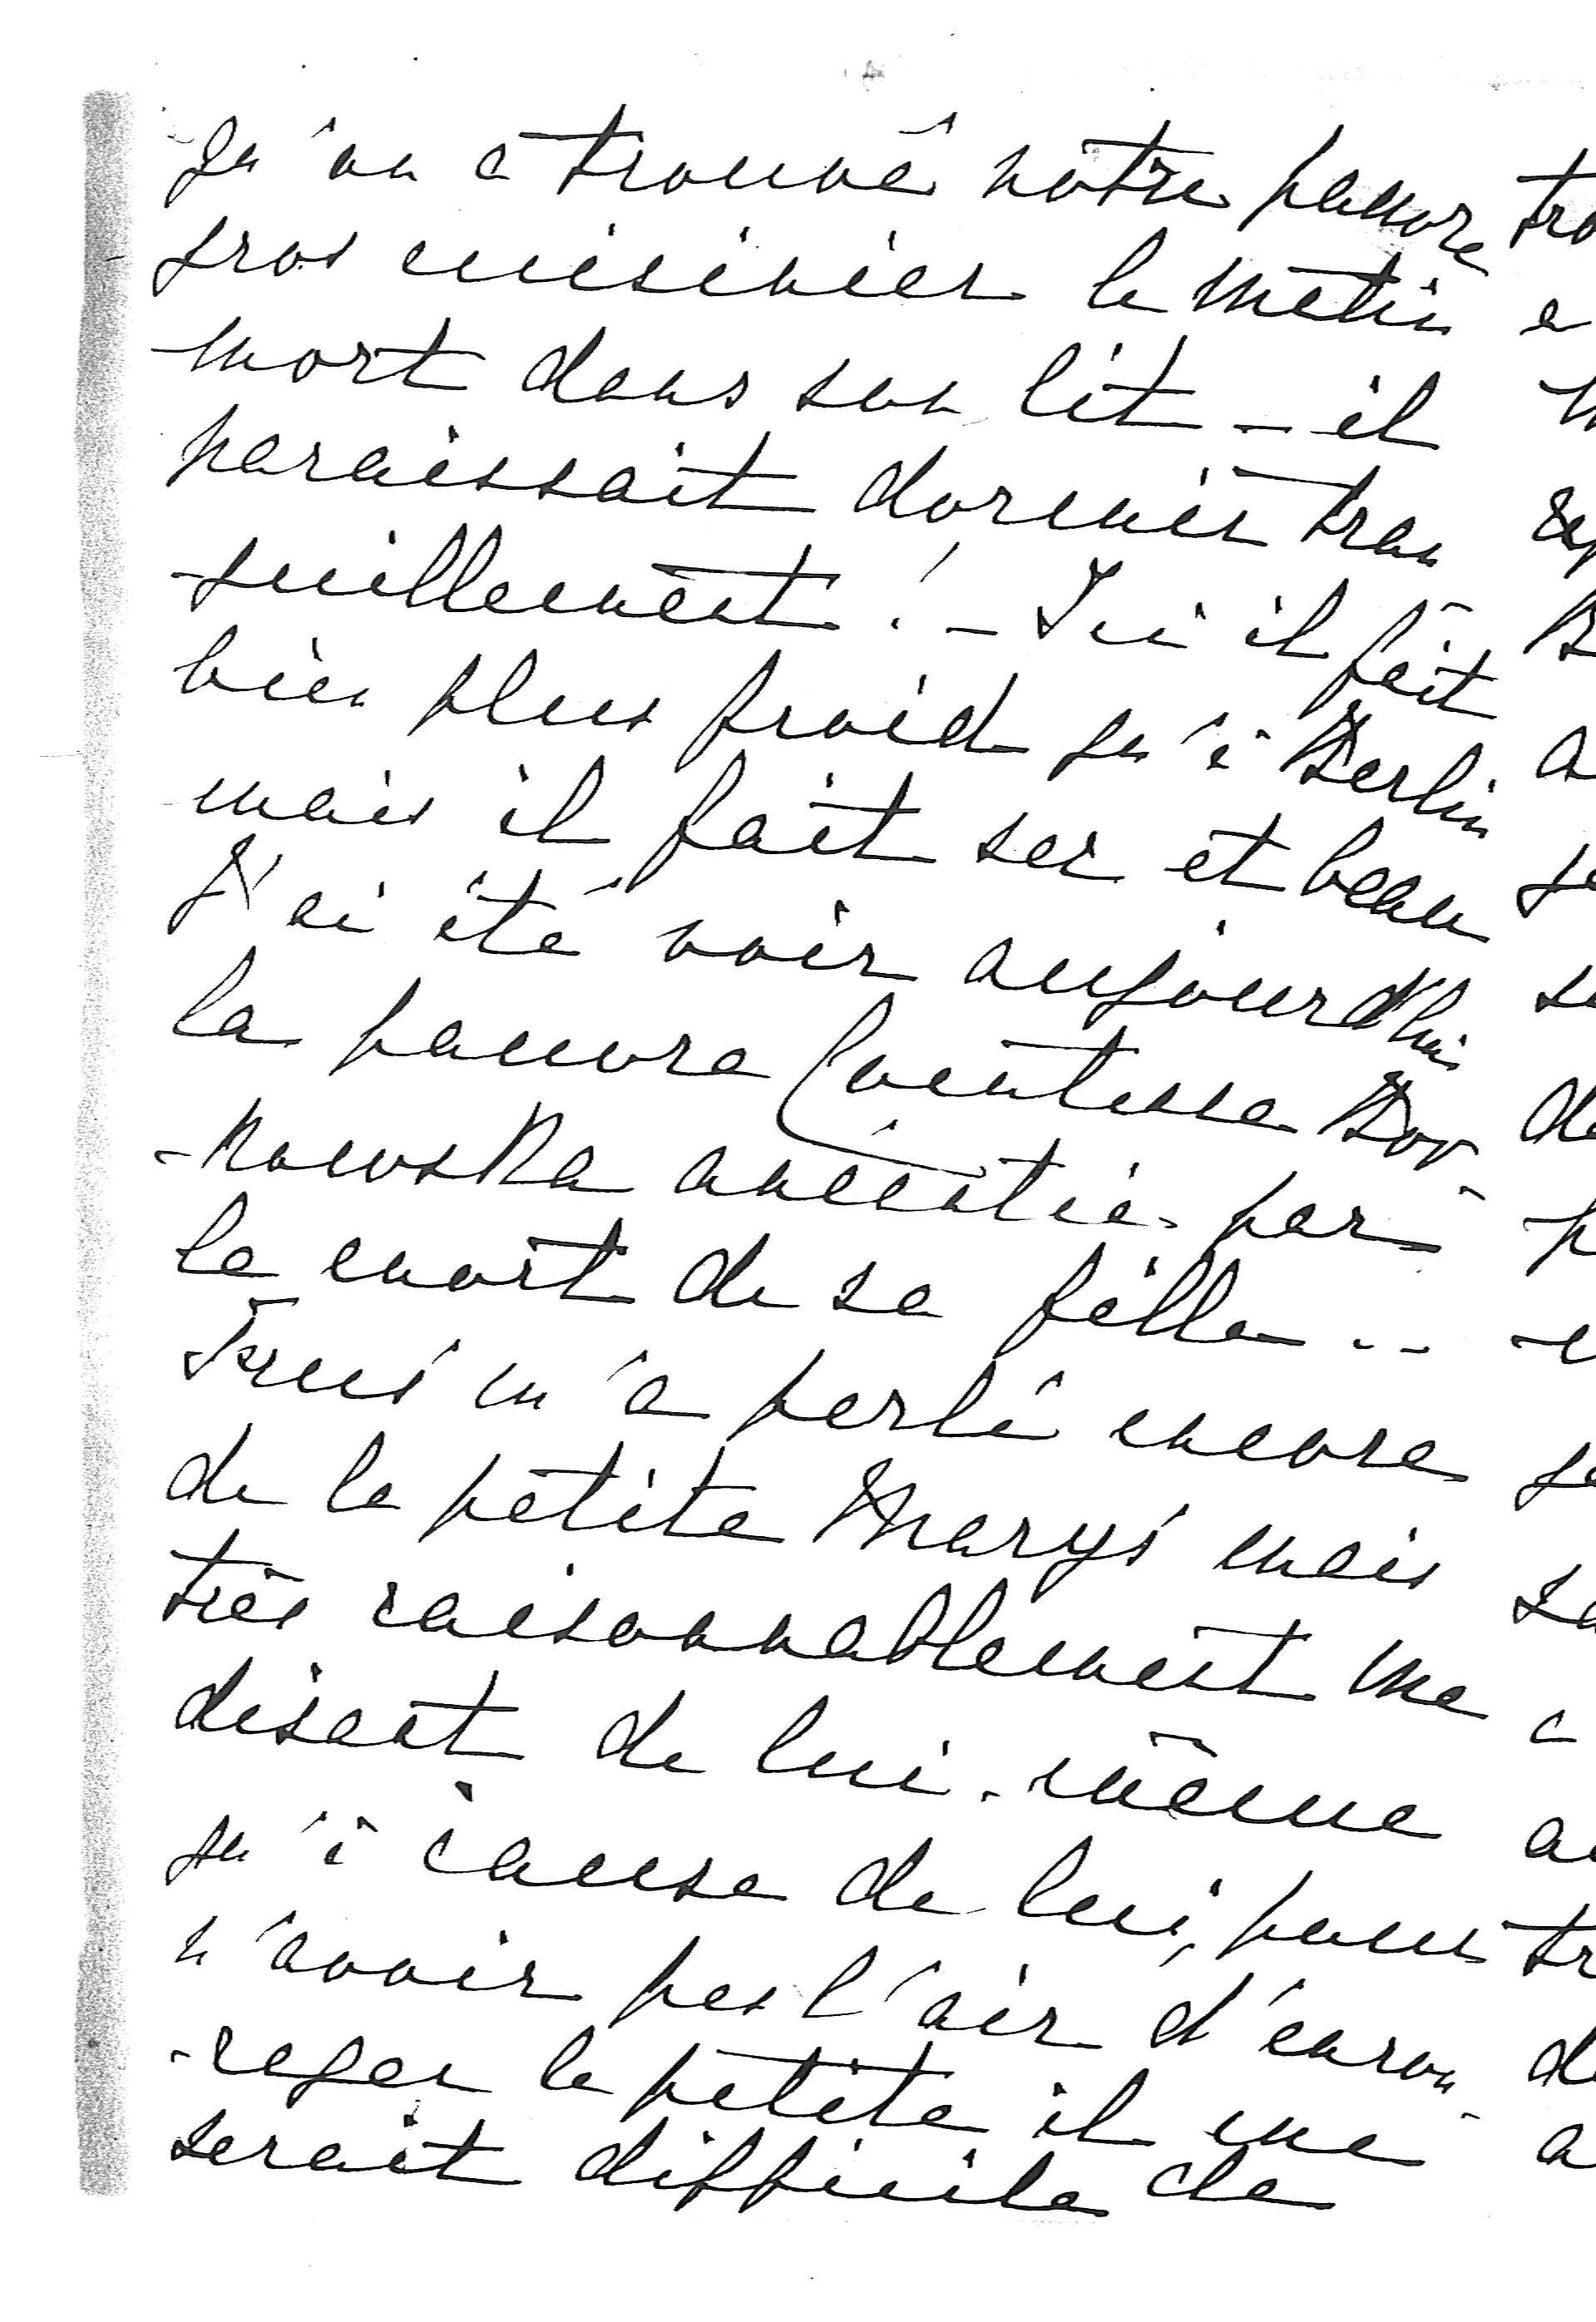 qu'on a trouvé notre pauvre
gros cuisinier le matin
mort dans son lit - il
paraissait dormir tran
-quillement! - Ici il fait
bien plus froid qu'à Berlin
mais il fait sec et beau
J'ai été voir aujourd'hui
la pauvre Comtesse Bor-
-kowska anéantie par
la mort de sa fille..
m'a parlé encore
de la petite Marys mais
très raisonnablement me
disant de lui-même
qu'à cause de lui, pour
n'avoir pas l'air d'encou-
-rager la petite il me
serait difficile de